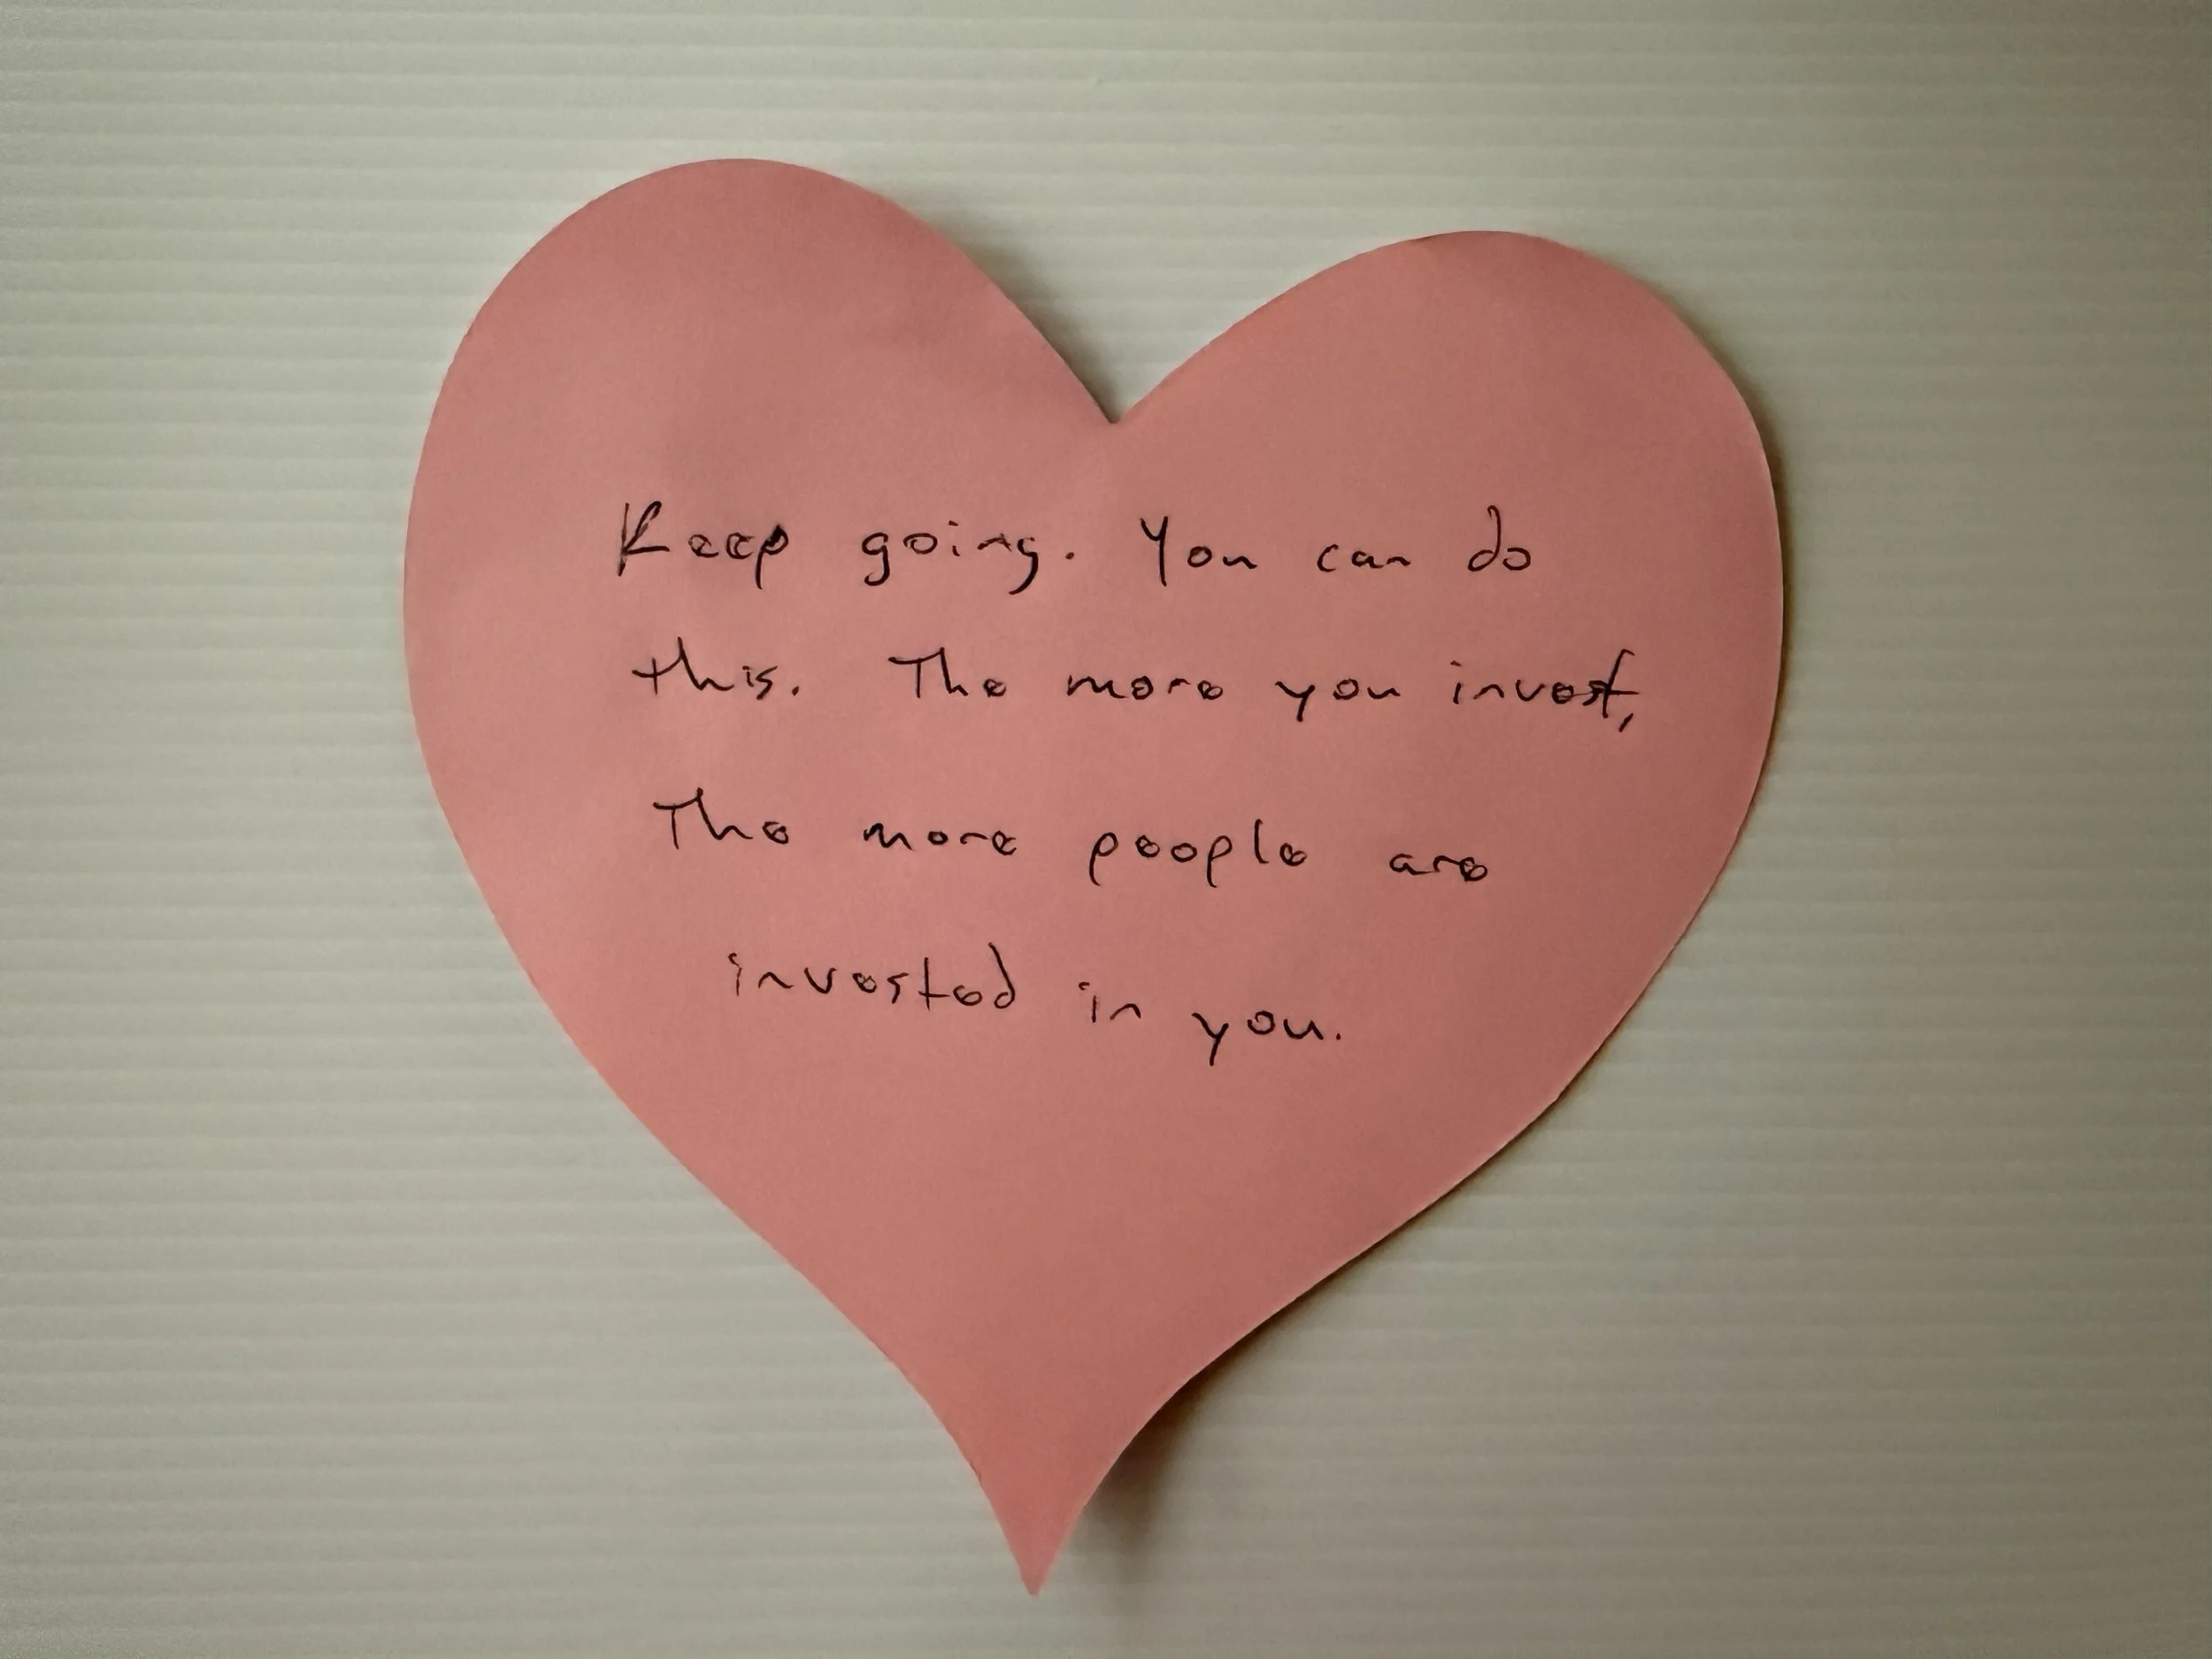 Keep going. You can do
this. The more you invest,
The more people are
invested in you.